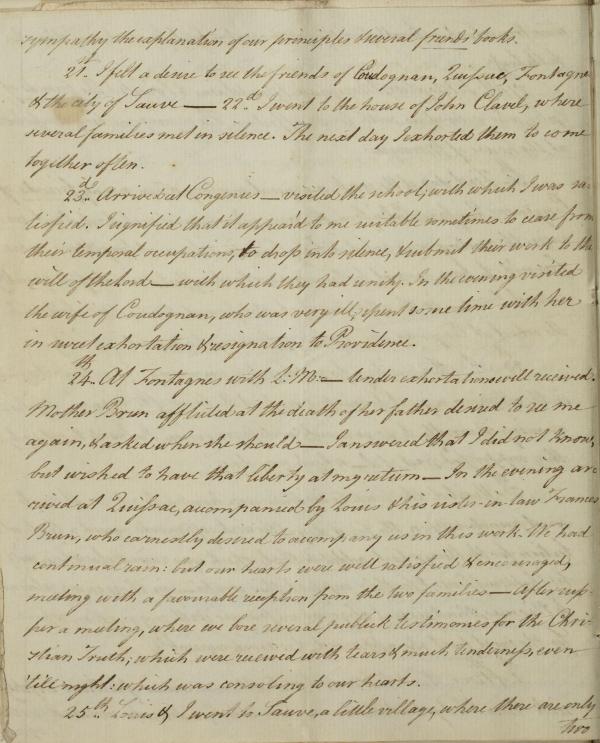 sympathy the explanation of our principles & several friends' books.
21st. I felt a desire to see the friends of Coudognan, Quissac, Fontagne
& the city of Sauve — 22d. I went to the house of John Clavel, where
several families met in silence. The next day I exhorted them to come
together often.
23d. Arrived at Congenies — visited the school; with which I was sa-
tisfied. I signified that it appear'd to me suitable sometimes to cease from
their temporal occupations, to drop into silence, & submit their work to the
will of the Lord — with which they had unity. In the evening visited
the wife of Coudognan, who was very ill; spent some time with her
in sweet exhortation & resignation to Providence.
24th. At Fontagnes with L: M: — tender exhortations well received.
Mother Brun afflicted at the death of her father desired to see me
again, & asked when she should — I answered that I did not know,
but wished to have that liberty at my return — In the evening ar-
rived at Quissac, acompanied by Louis & his sister-in-law Frances
Brun, who earnestly desired to acompany us in this work. We had
continual rain: but our hearts were well satisfied & encouraged,
meeting with a favourable reception from the two families — After sup-
per a meeting, where we bore several publick testimonies for the Chri-
stian Truth; which were received with tears & much tenderness, even
'till night: which was consoling to our hearts.
25th. Louis & I went to Sauve, a little village, where there are only
two